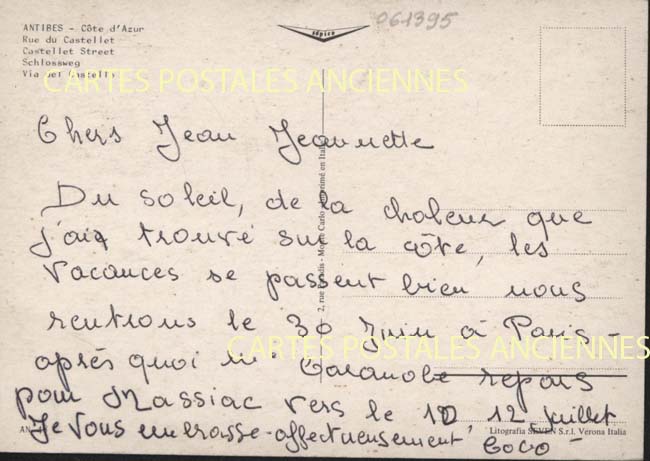 ANTIBES - Côte d'Azur
Rue du Castellet
Castellet Street
Schlossweg
Via del Castello
sépico
061395
CARTES POSTALES ANCIENNES
Chers Jean Jeannette
Du soleil, de la chaleur que
j'ai trouvé sur la côte, les
vacances se passent bien nous
rentrons le 30 Juin à Paris -
CARTES POSTALES ANCIENNES
après quoi repars
pour Massiac vers le 12 juillet
Je vous embrasse affectueusement Coco -
2, rue Paradis - Monte Carlo Imprimé en Italie
AN
Litografia SEVEN S.r.l. Verona Italia